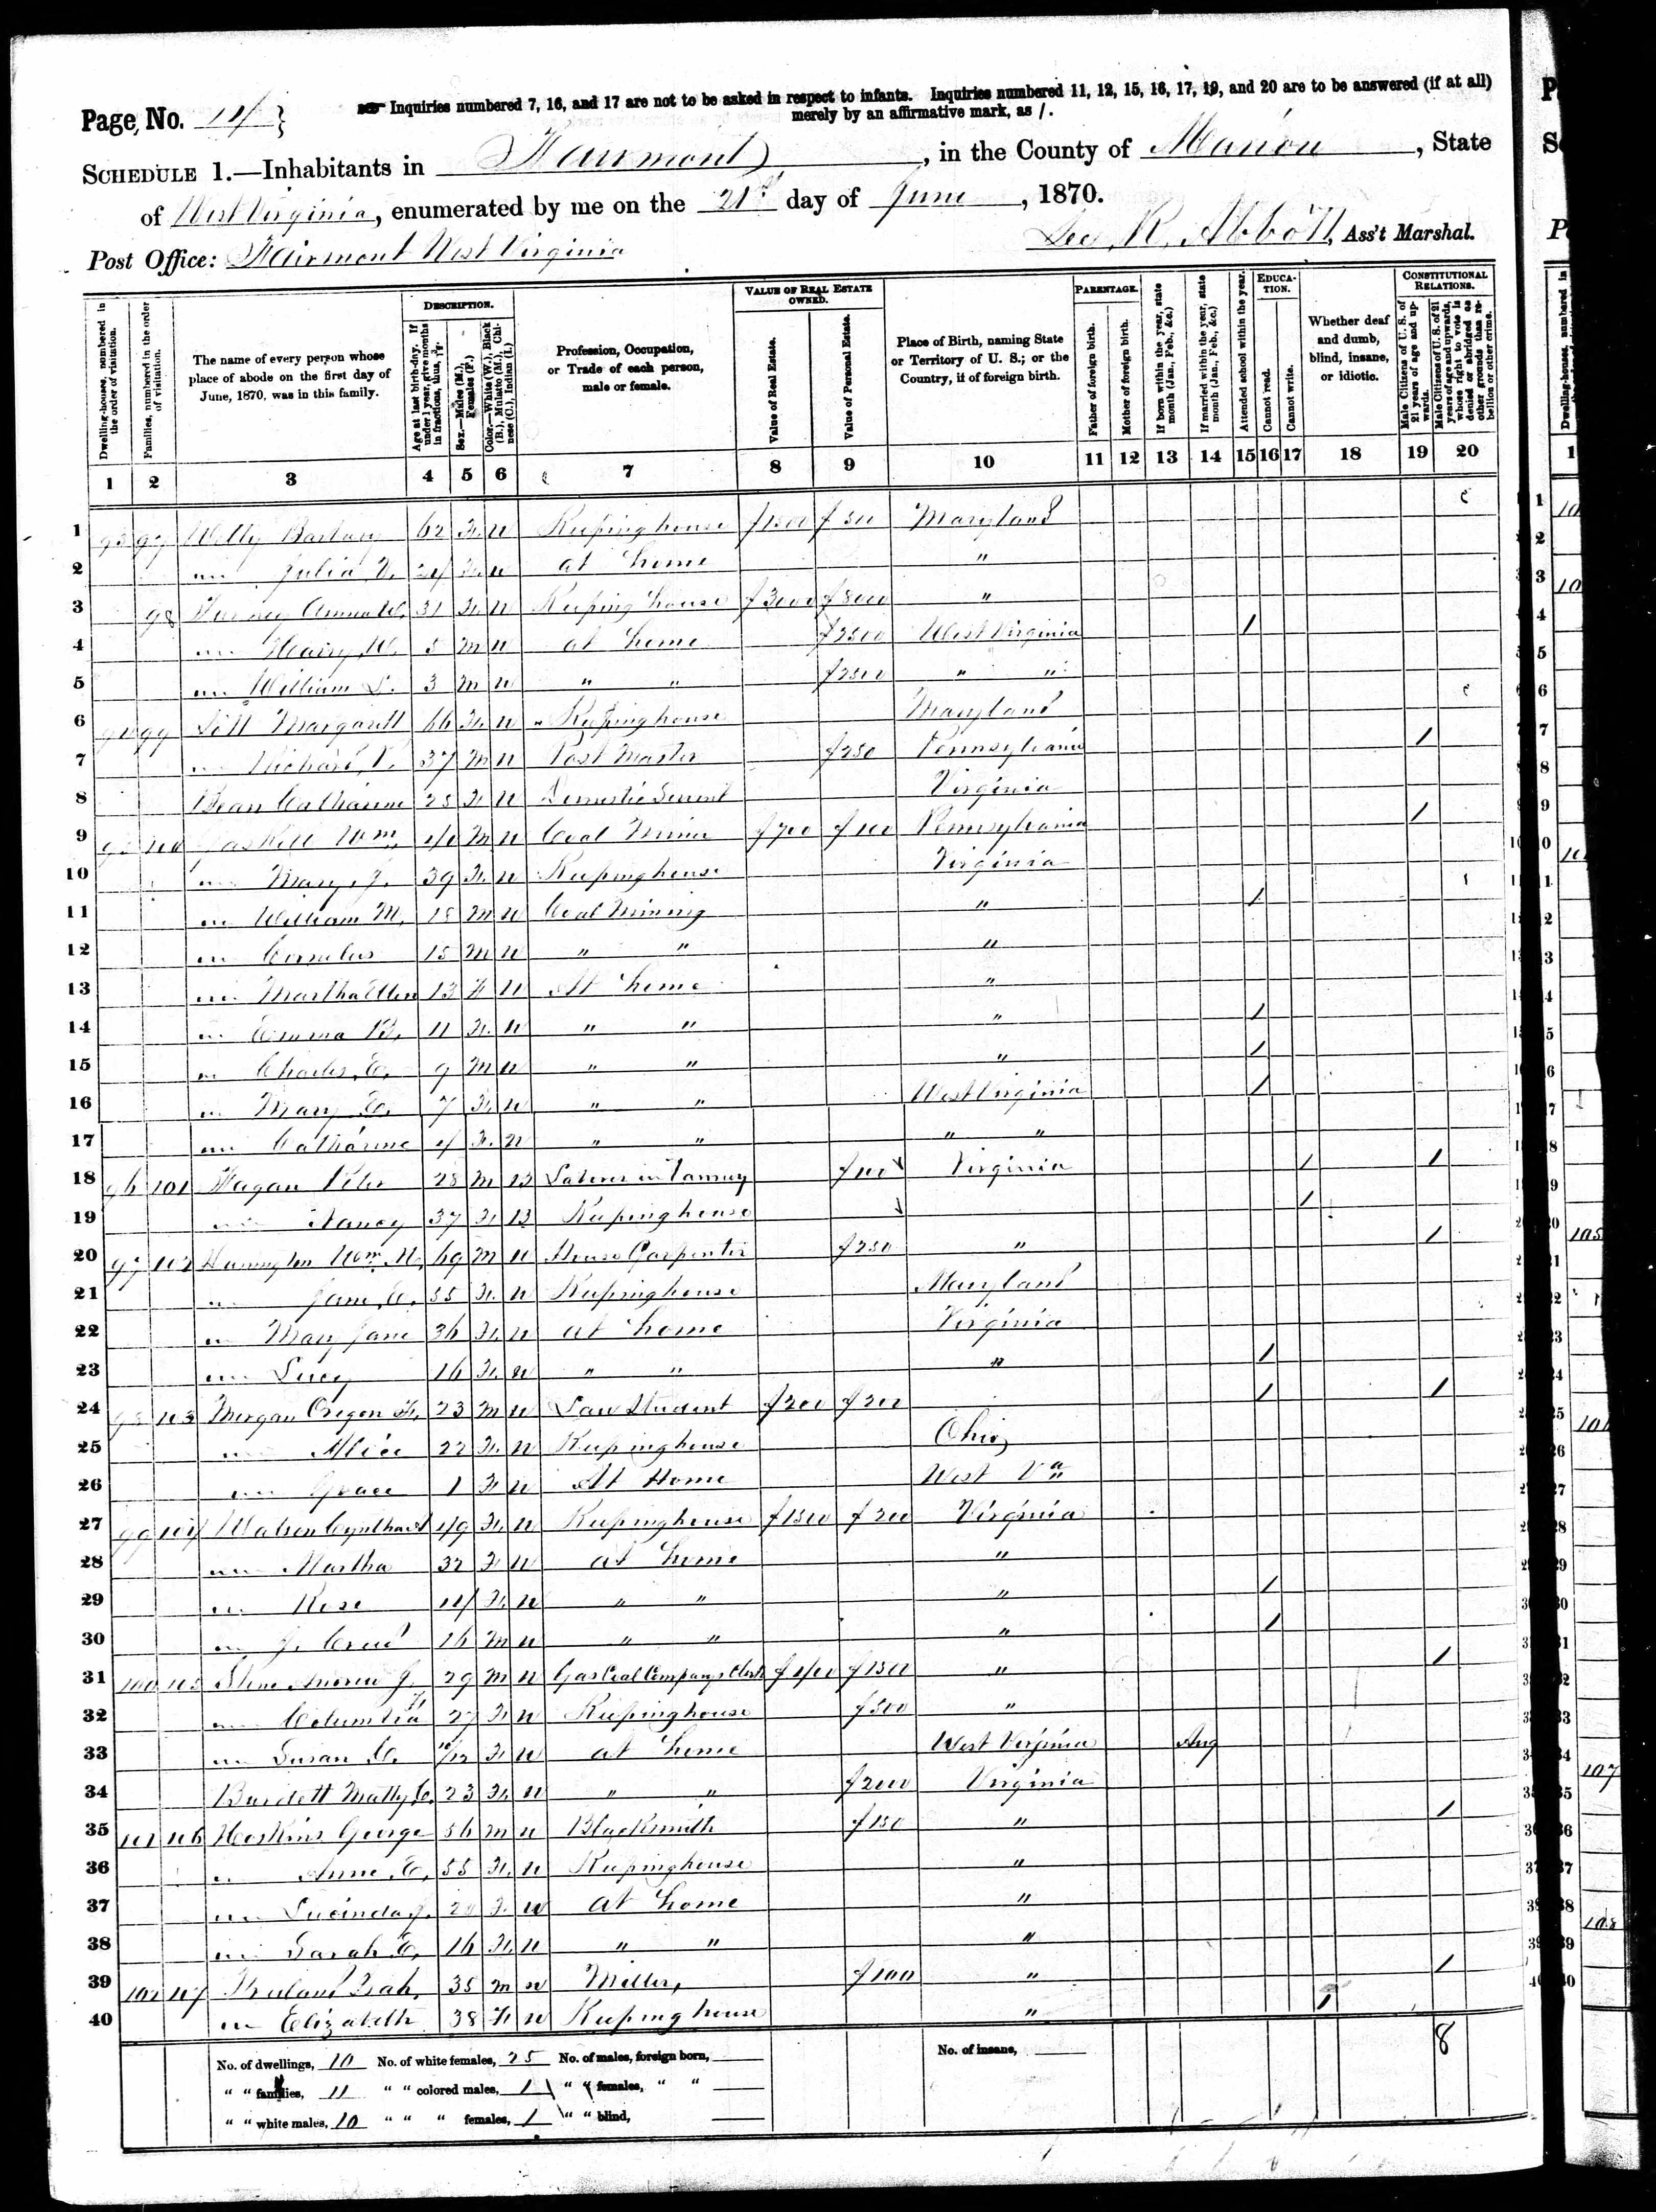 Page No. 14
Inquiries numbered 7, 16, and 17 are not to be asked in respect to infants. Inquiries numbered 11, 12, 15, 16, 17, 19, and 20 are to be answered (if at all)
merely by an affirmative mark, as /.
SCHEDULE 1.—Inhabitants in Fairmont, in the County of Marion, State
of West Virginia, enumerated by me on the 21st day of June, 1870.
Post Office: Fairmont West Virginia
Geo. R. Abbott, Ass't Marshal.
Dwelling-houses, numbered in the order of visitation.
Families, numbered in the order of visitation.
The name of every person whose place of abode on the first day of June, 1870, was in this family.
DESCRIPTION.
Age at last birth-day. If under 1 year, give months in fractions, thus, 3/12.
Sex.—Males (M.), Females (F.)
Color.—White (W.), Black (B.), Mulatto (M.), Chinese (C.), Indian (I.)
Profession, Occupation, or Trade of each person, male or female.
VALUE OF REAL ESTATE OWNED.
Value of Real Estate.
Value of Personal Estate.
Place of Birth, naming State or Territory of U. S.; or the Country, if of foreign birth.
PARENTAGE.
Father of foreign birth.
Mother of foreign birth.
If born within the year, state month (Jan., Feb., &c.)
If married within the year, state month (Jan., Feb., &c.)
Attended school within the year.
EDUCATION.
Cannot read.
Cannot write.
Whether deaf and dumb, blind, insane, or idiotic.
CONSTITUTIONAL RELATIONS.
Male Citizens of U. S. of 21 years of age and upwards.
Male Citizens of U. S. of 21 years of age and upwards, whose right to vote is denied or abridged on other grounds than rebellion or other crime.
1 2 3 4 5 6 7 8 9 10 11 12 13 14 15 16 17 18 19 20
1 97 Welty 62 F W Keeping house 1500 500 Maryland
2 " Julia 24 F W at home "
3 98 Anna W. 31 F W Keeping house 3000 8000 "
4 " Harry W. 5 M W at home 2500 West Virginia /
5 " William S. 3 M W " " 2500 " "
6 99 Margarett 66 F W Keeping house Maryland
7 " Richard 37 M W Post Master 250 Pennsylvania /
8 Bean Catharine 25 F W Domestic Servent Virginia
9 100 Gaskill Wm. 40 M W Coal Miner 700 100 Pennsylvania /
10 " Mary J. 39 F W Keeping house Virginia
11 " William M. 18 M W Coal Mining " /
12 " Cornelus 15 M W " " "
13 " Martha Ellen 13 F W At home "
14 " Emma B. 11 F W " " " /
15 " Charles E. 9 M W " " " /
16 " Mary E. 7 F W " " West Virginia /
17 " Catharine 4 F W " " " "
18 96 101 Hagan Peter 28 M B Laborer in Tannery 100 Virginia / /
19 " Nancy 37 F B Keeping house /
20 97 102 Wm. N. 69 M W House Carpenter 250 " /
21 " Jane C. 55 F W Keeping house Maryland
22 " Mary Jane 36 F W at home Virginia
23 " Lucy 16 F W " " " /
24 98 103 Morgan Oregon F. 23 M W Law Student 200 200 / /
25 " Alice 22 F W Keeping house Ohio
26 " Grace 1 F W At Home West Va
27 99 104 Watson Cyntha A 49 F W Keeping house 1500 200 Virginia
28 " Martha 32 F W at home "
29 " Rose 14 F W " " " /
30 " J. 16 M W " " " /
31 100 105 Stone Andrew J. 29 M W Gas Coal Companys Clerk 400 1500 " /
32 " Columbia 27 F W Keeping house 500 "
33 " Susan C. 10/12 F W at home West Virginia Aug
34 Burdett Matty C. 23 F W " " 2000 Virginia
35 101 106 Hoskins George 56 M W Blacksmith 150 " /
36 " Anne E. 55 F W Keeping house "
37 " Lucinda J. F W at home "
38 " Sarah E. 16 F W " " "
39 102 107 35 M W Miller, 100 " /
40 " Elizabeth 38 F W Keeping house " /
No. of dwellings, 10 No. of white females, 25 No. of males, foreign born, No. of insane, 8
" " families, 11 " " colored males, 1 " " females, " "
" " white males, 10 " " " females, 1 " " blind,